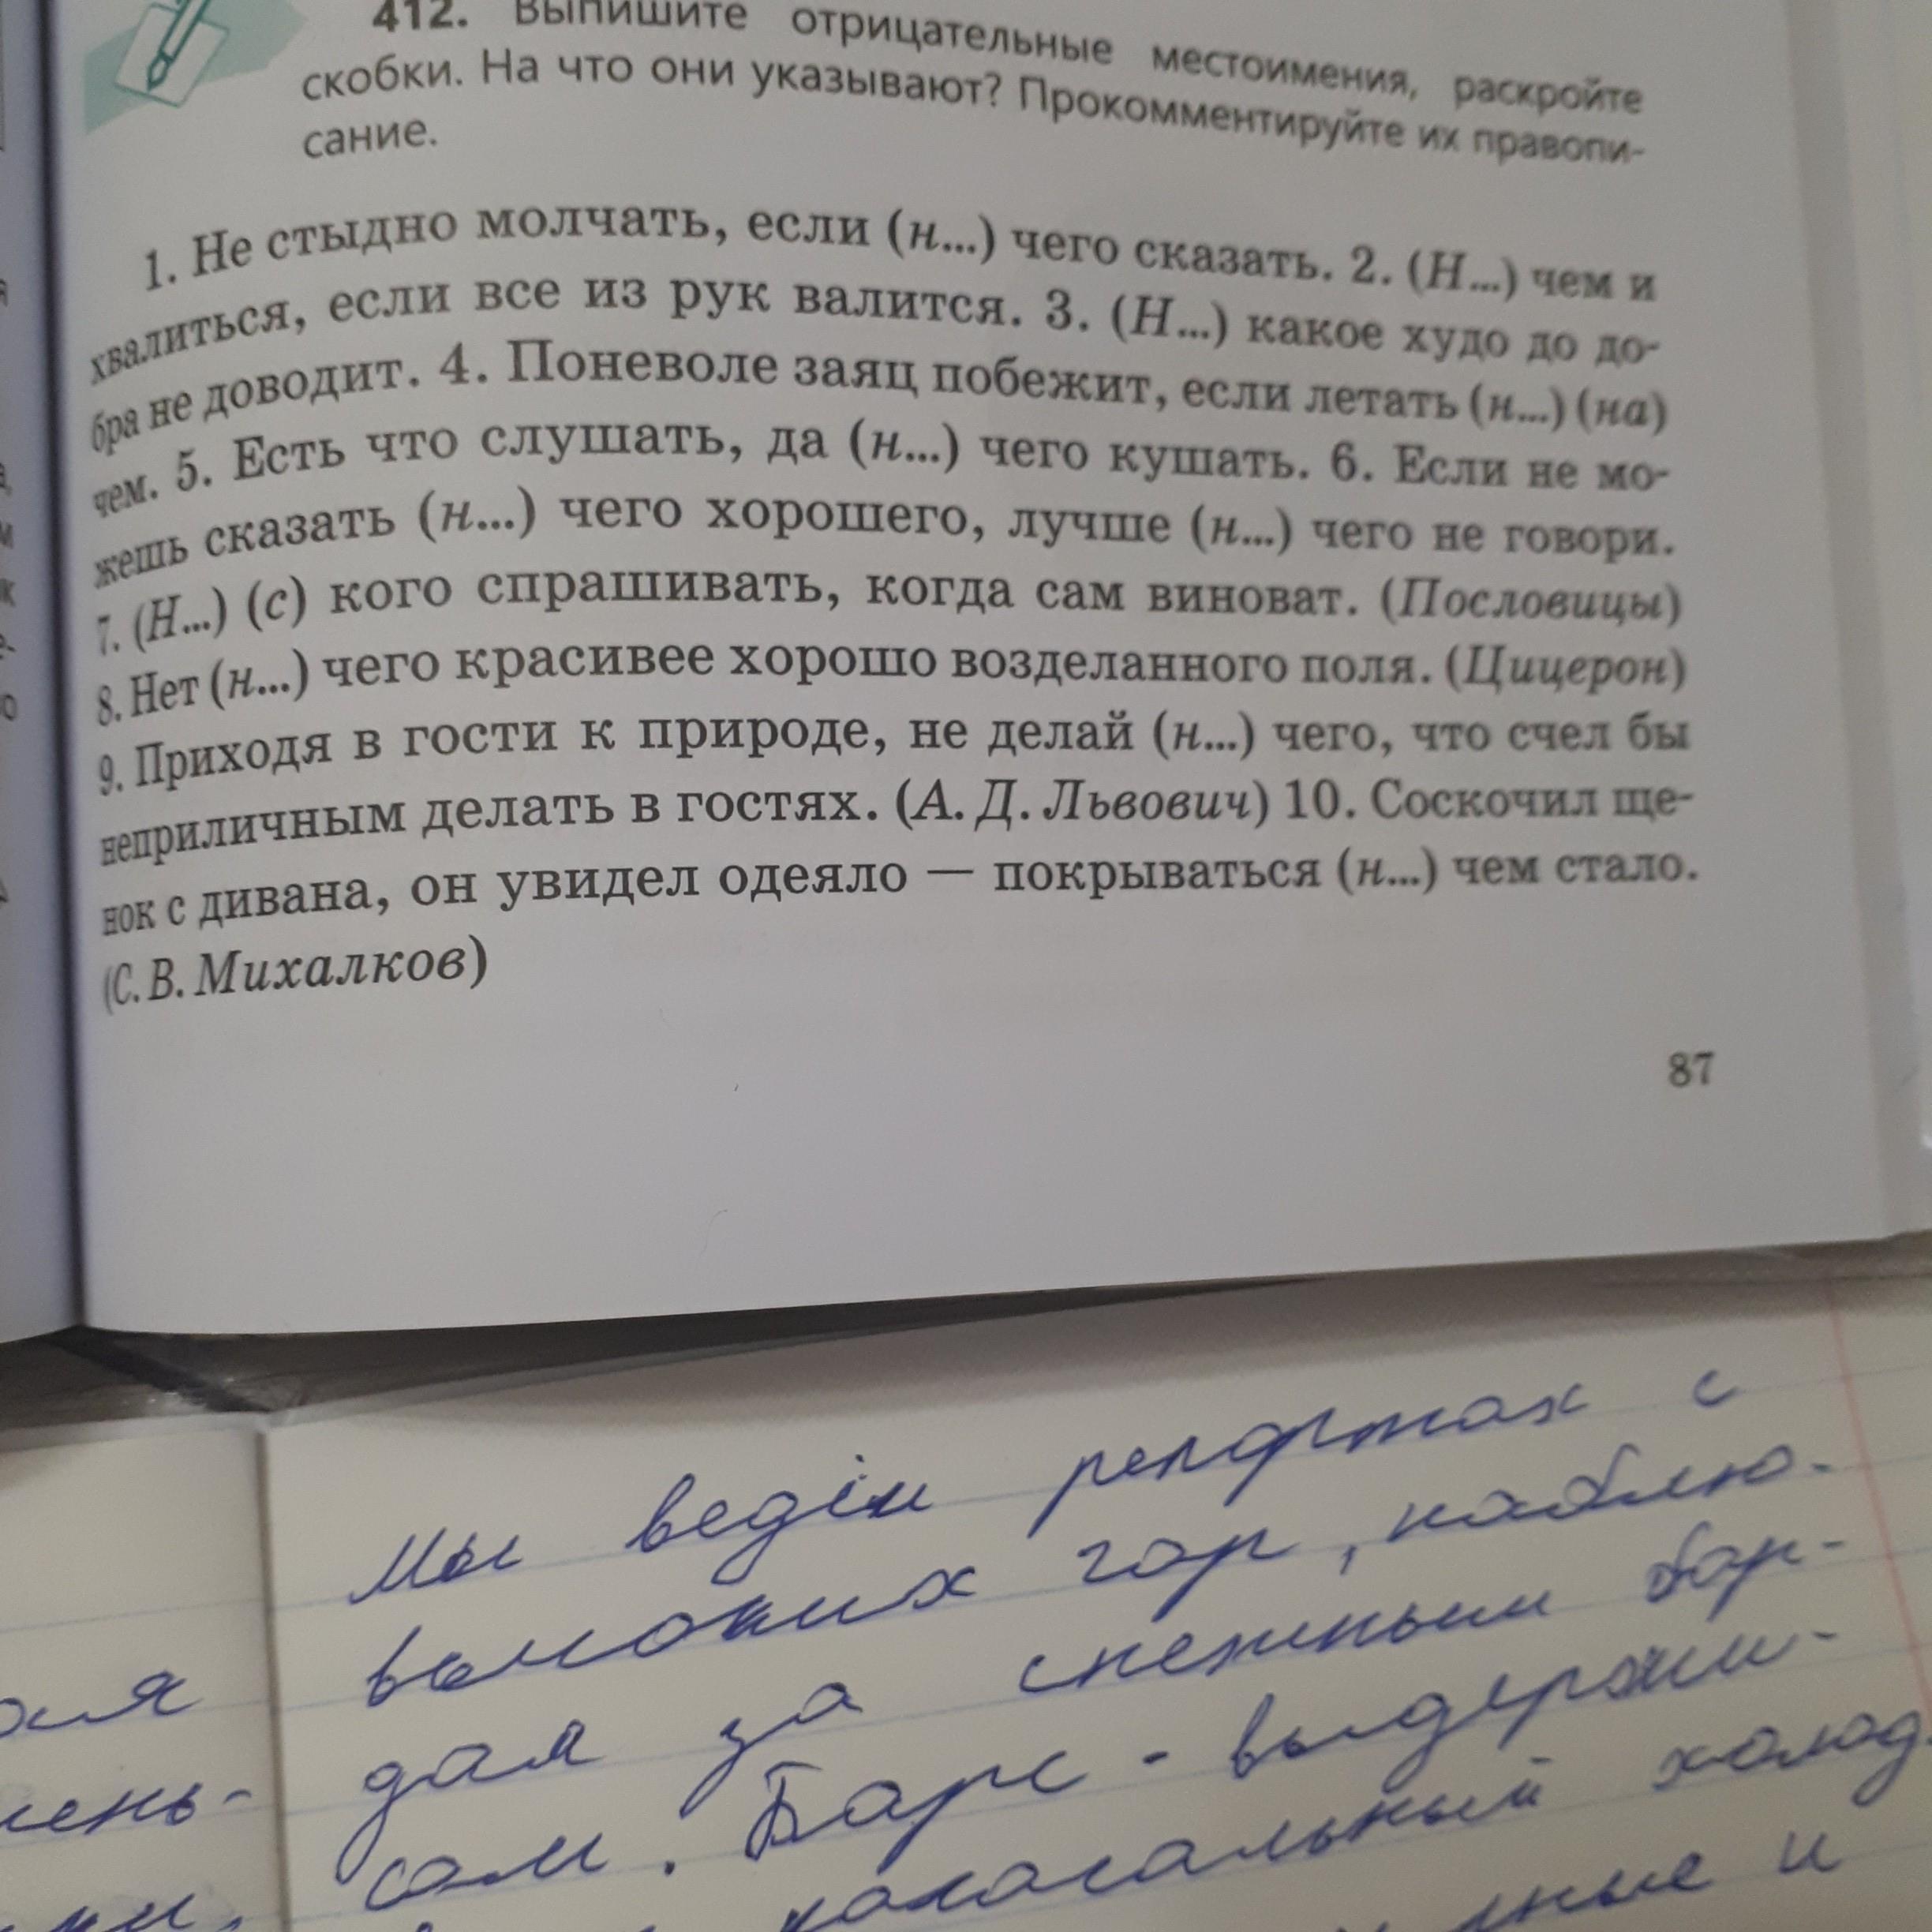 412. Выпишите отрицательные местоимения, раскройте
скобки. На что они указывают? Прокомментируйте их правопи-
сание.
1. Не стыдно молчать, если (н...) чего сказать. 2. (Н...) чем и
хвалиться, если все из рук валится. 3. (Н...) какое худо до до-
бра не доводит. 4. Поневоле заяц побежит, если летать (н...) (на)
чем. 5. Есть что слушать, да (н...) чего кушать. 6. Если не мо-
жешь сказать (н...) чего хорошего, лучше (н...) чего не говори.
7. (Н...) (с) кого спрашивать, когда сам виноват. (Пословицы)
8. Нет (н...) чего красивее хорошо возделанного поля. (Цицерон)
9. Приходя в гости к природе, не делай (н...) чего, что счел бы
неприличным делать в гостях. (А. Д. Львович) 10. Соскочил ще-
нок с дивана, он увидел одеяло — покрываться (н...) чем стало.
(С. В. Михалков)
87
Мы ведём репортаж с
высоких гор, наблю-
дая за снежным бар-
сом. Барс - выдержи-
колосальный холод